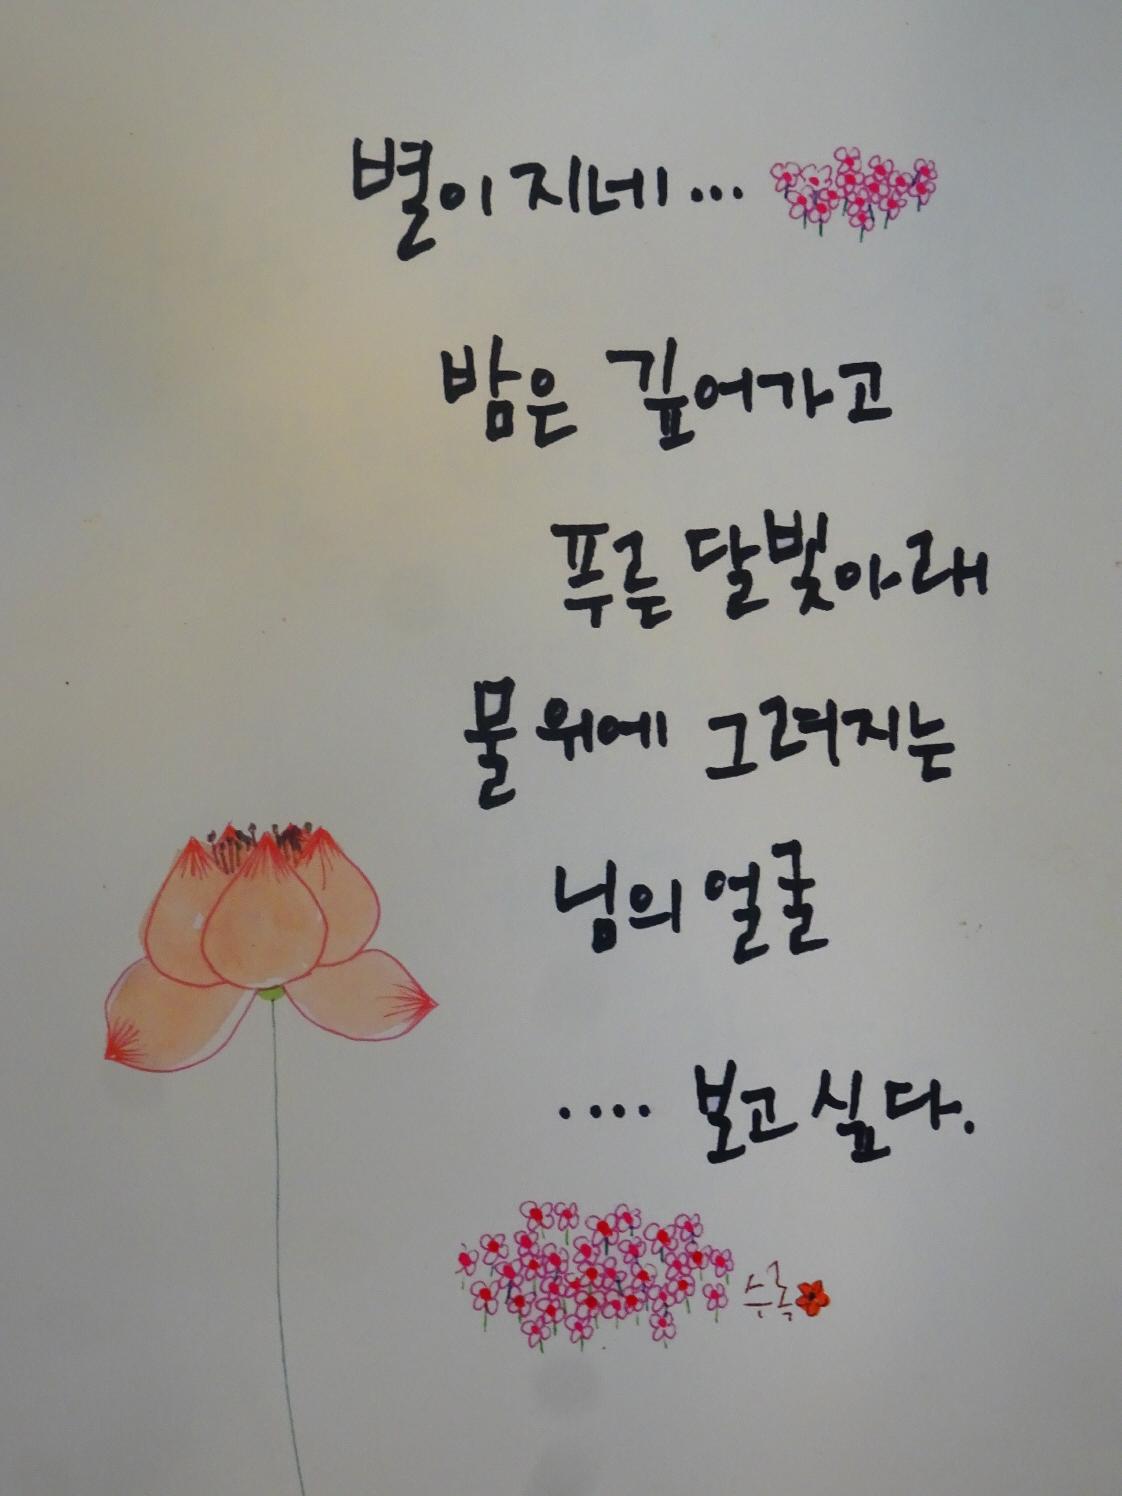 별이 지네...
밤은 깊어가고
푸른 달빛아래
물 위에 그려지는
님의 얼굴
.... 보고 싶다.